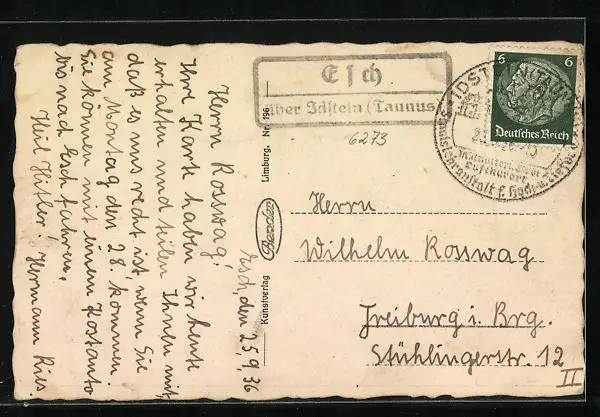 Esch, den 25.9.36
Herrn Roswag!
Ihre Karte haben wir heute
erhalten und teilen Ihnen mit,
daß es uns recht ist, wenn Sie
am Montag den 28. kommen.
Sie können mit einem Postauto
bis nach Esch fahren.
Heil Hitler! Hermann Ries.
Kunstverlag
Limburg. Nr. 196
Esch
über Idstein (Taunus)
6273
6 6
Deutsches Reich
IDSTEIN (TAUNUS)
Luftkurort
Herrn
Wilhelm Roswag
Freiburg i. Brg.
Stühlingerstr. 12
II